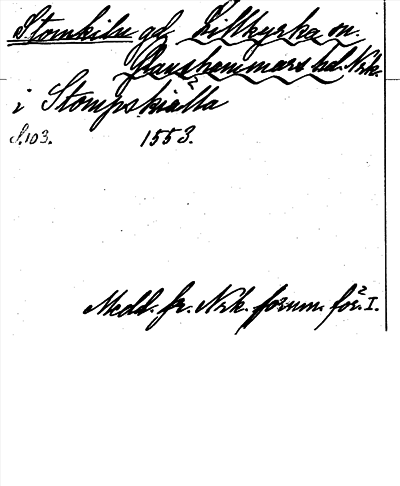 Stomkila gd Lillkyrka sn.
Glanshammars hd. Nrk.
i Stompskialla
S. 103. 1553.
Medd. fr. Nrk. fornm. för. I.